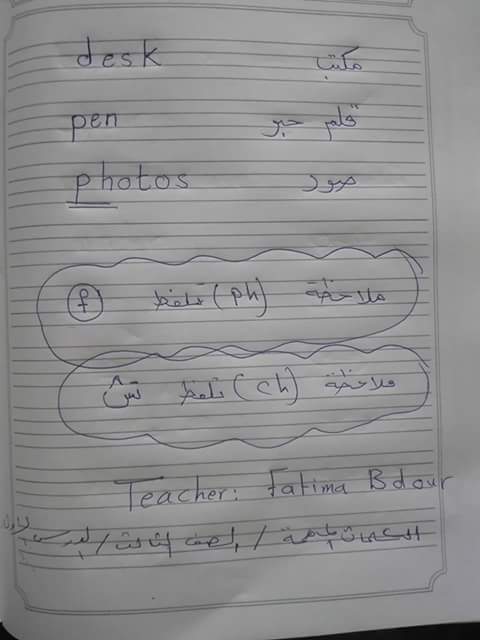 desk مكتب
pen قلم حبر
photos صور
ملاحظة (ph) تلفظ f
ملاحظة (ch) تلفظ تش
Teacher: Fatima Bdour
الكلمات المهمة / الصف الثالث / الدرس الاول